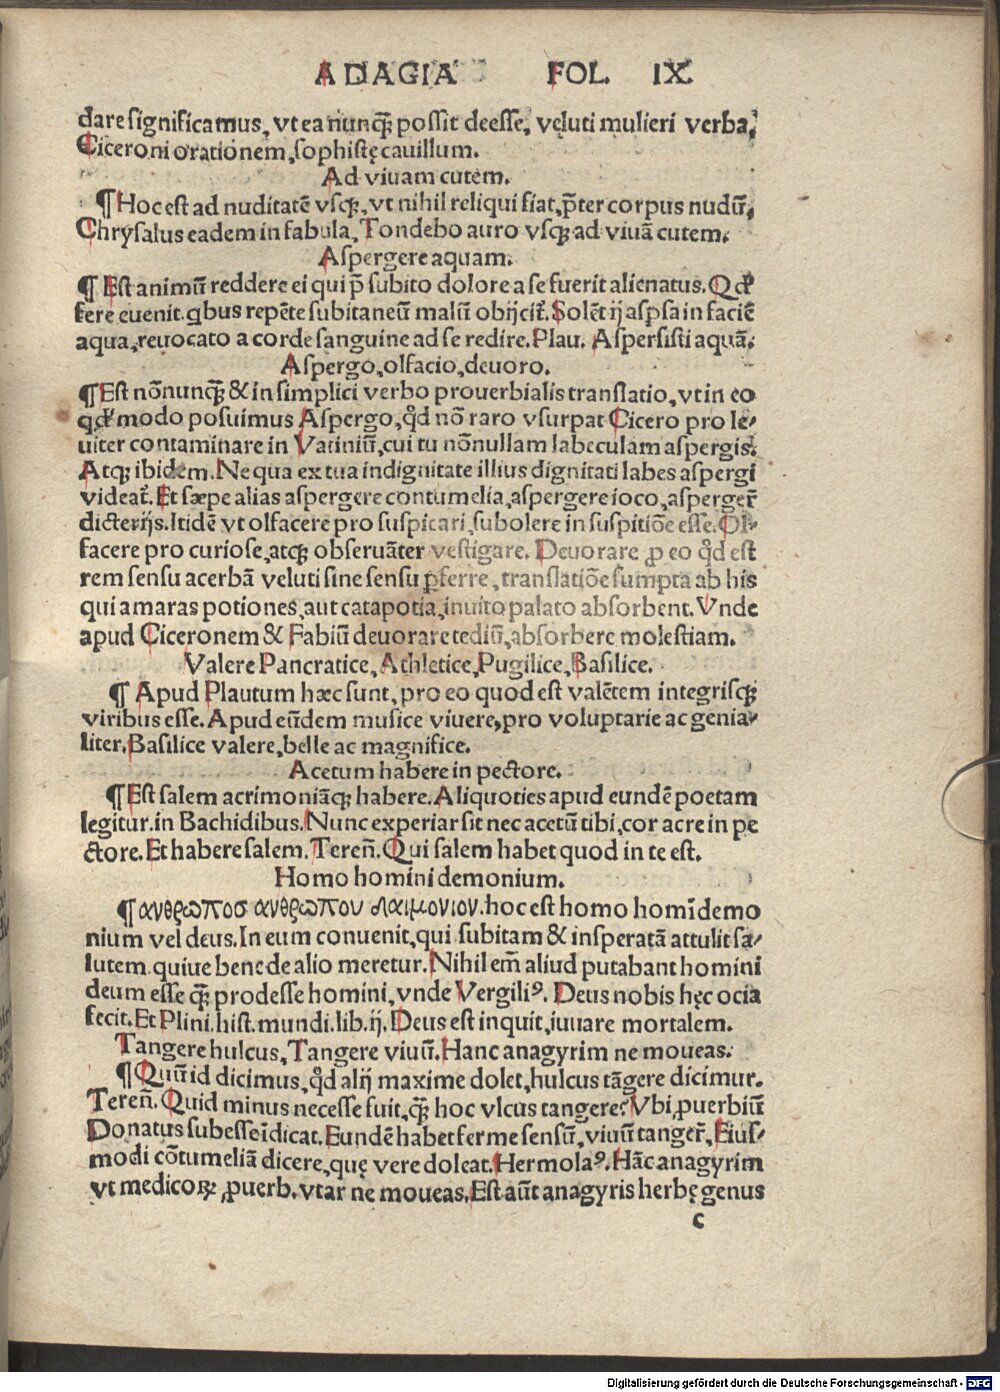 ADAGIA FOL. IX
dare significamus, vt ea nunq̃ possit deesse, veluti mulieri verba,
Ciceroni orationem, sophistę cauillum.
Ad viuam cutem.
¶ Hoc est ad nuditatē vsq;, vt nihil reliqui fiat, p̃ter corpus nudū,
Chrysalus eadem in fabula, Tondebo auro vsq; ad viuā cutem.
Aspergere aquam.
¶ Est animū reddere ei qui p̄ subito dolore a se fuerit alienatus. Qđ
fere euenit. qbus repēte subitaneū malū obijcit̃. Solēt ij aspsa in faciē
aqua, reuocato a corde sanguine ad se redire. Plau. Aspersisti aquā.
Aspergo, olfacio, deuoro.
¶ Est nōnunq̃ & in simplici verbo prouerbialis translatio, vt in eo
qđ modo posuimus Aspergo, qđ nō raro vsurpat Cicero pro le-
uiter contaminare in Vatiniū, cui tu nōnullam labeculam aspergis.
Atq; ibidem. Ne qua ex tua indignitate illius dignitati labes aspergi
videat̃. Et sæpe alias aspergere contumelia, aspergere ioco, asperger̃
dicterijs. Itidē vt olfacere pro suspicari, subolere in suspitiōe esse. Ol-
facere pro curiose, atq; obseruāter vestigare. Deuorare ꝓ eo qđ est
rem sensu acerbā veluti sine sensu ꝑferre, translatiōe sumpta ab his
qui amaras potiones, aut catapotia, inuito palato absorbent. Vnde
apud Ciceronem & Fabiū deuorare tediū, absorbere molestiam.
Valere Pancratice, Athletice, Pugilice, Basilice.
¶ Apud Plautum hæc sunt, pro eo quod est valētem integrisq;
viribus esse. Apud eūdem musice viuere, pro voluptarie ac genia-
liter. Basilice valere, belle ac magnifice.
Acetum habere in pectore.
¶ Est salem acrimoniāq; habere. Aliquoties apud eundē poetam
legitur. in Bachidibus. Nunc experiar sit nec acetū tibi, cor acre in pe
ctore. Et habere salem. Tereñ. Qui salem habet quod in te est.
Homo homini demonium.
¶ ανθρωποσ ανθρωπου δαιμονιον. hoc est homo homīdemo
nium vel deus. In eum conuenit, qui subitam & insperatā attulit sa-
lutem. quiue bene de alio meretur. Nihil em̄ aliud putabant homini
deum esse q̃ prodesse homini, vnde Vergiliꝰ. Deus nobis hęc ocia
fecit. Et Plini. hist. mundi. lib. ij. Deus est inquit, iuuare mortalem.
Tangere hulcus, Tangere viuū. Hanc anagyrim ne moueas.
¶ Quū id dicimus, qđ alij maxime dolet, hulcus tāgere dicimur.
Tereñ. Quid minus necesse fuit, q̃ hoc vlcus tangere? Vbi ꝓuerbiū
Donatus subesse īdicat. Eundē habet ferme sensū, viuū tanger̃. Eius-
modi cōtumeliā dicere, quę vere doleat. Hermolaꝰ. Hāc anagyrim
vt medicoꝝ ꝓuerb. vtar ne moueas. Est aūt anagyris herbę genus
c
Digitalisierung gefördert durch die Deutsche Forschungsgemeinschaft - DFG